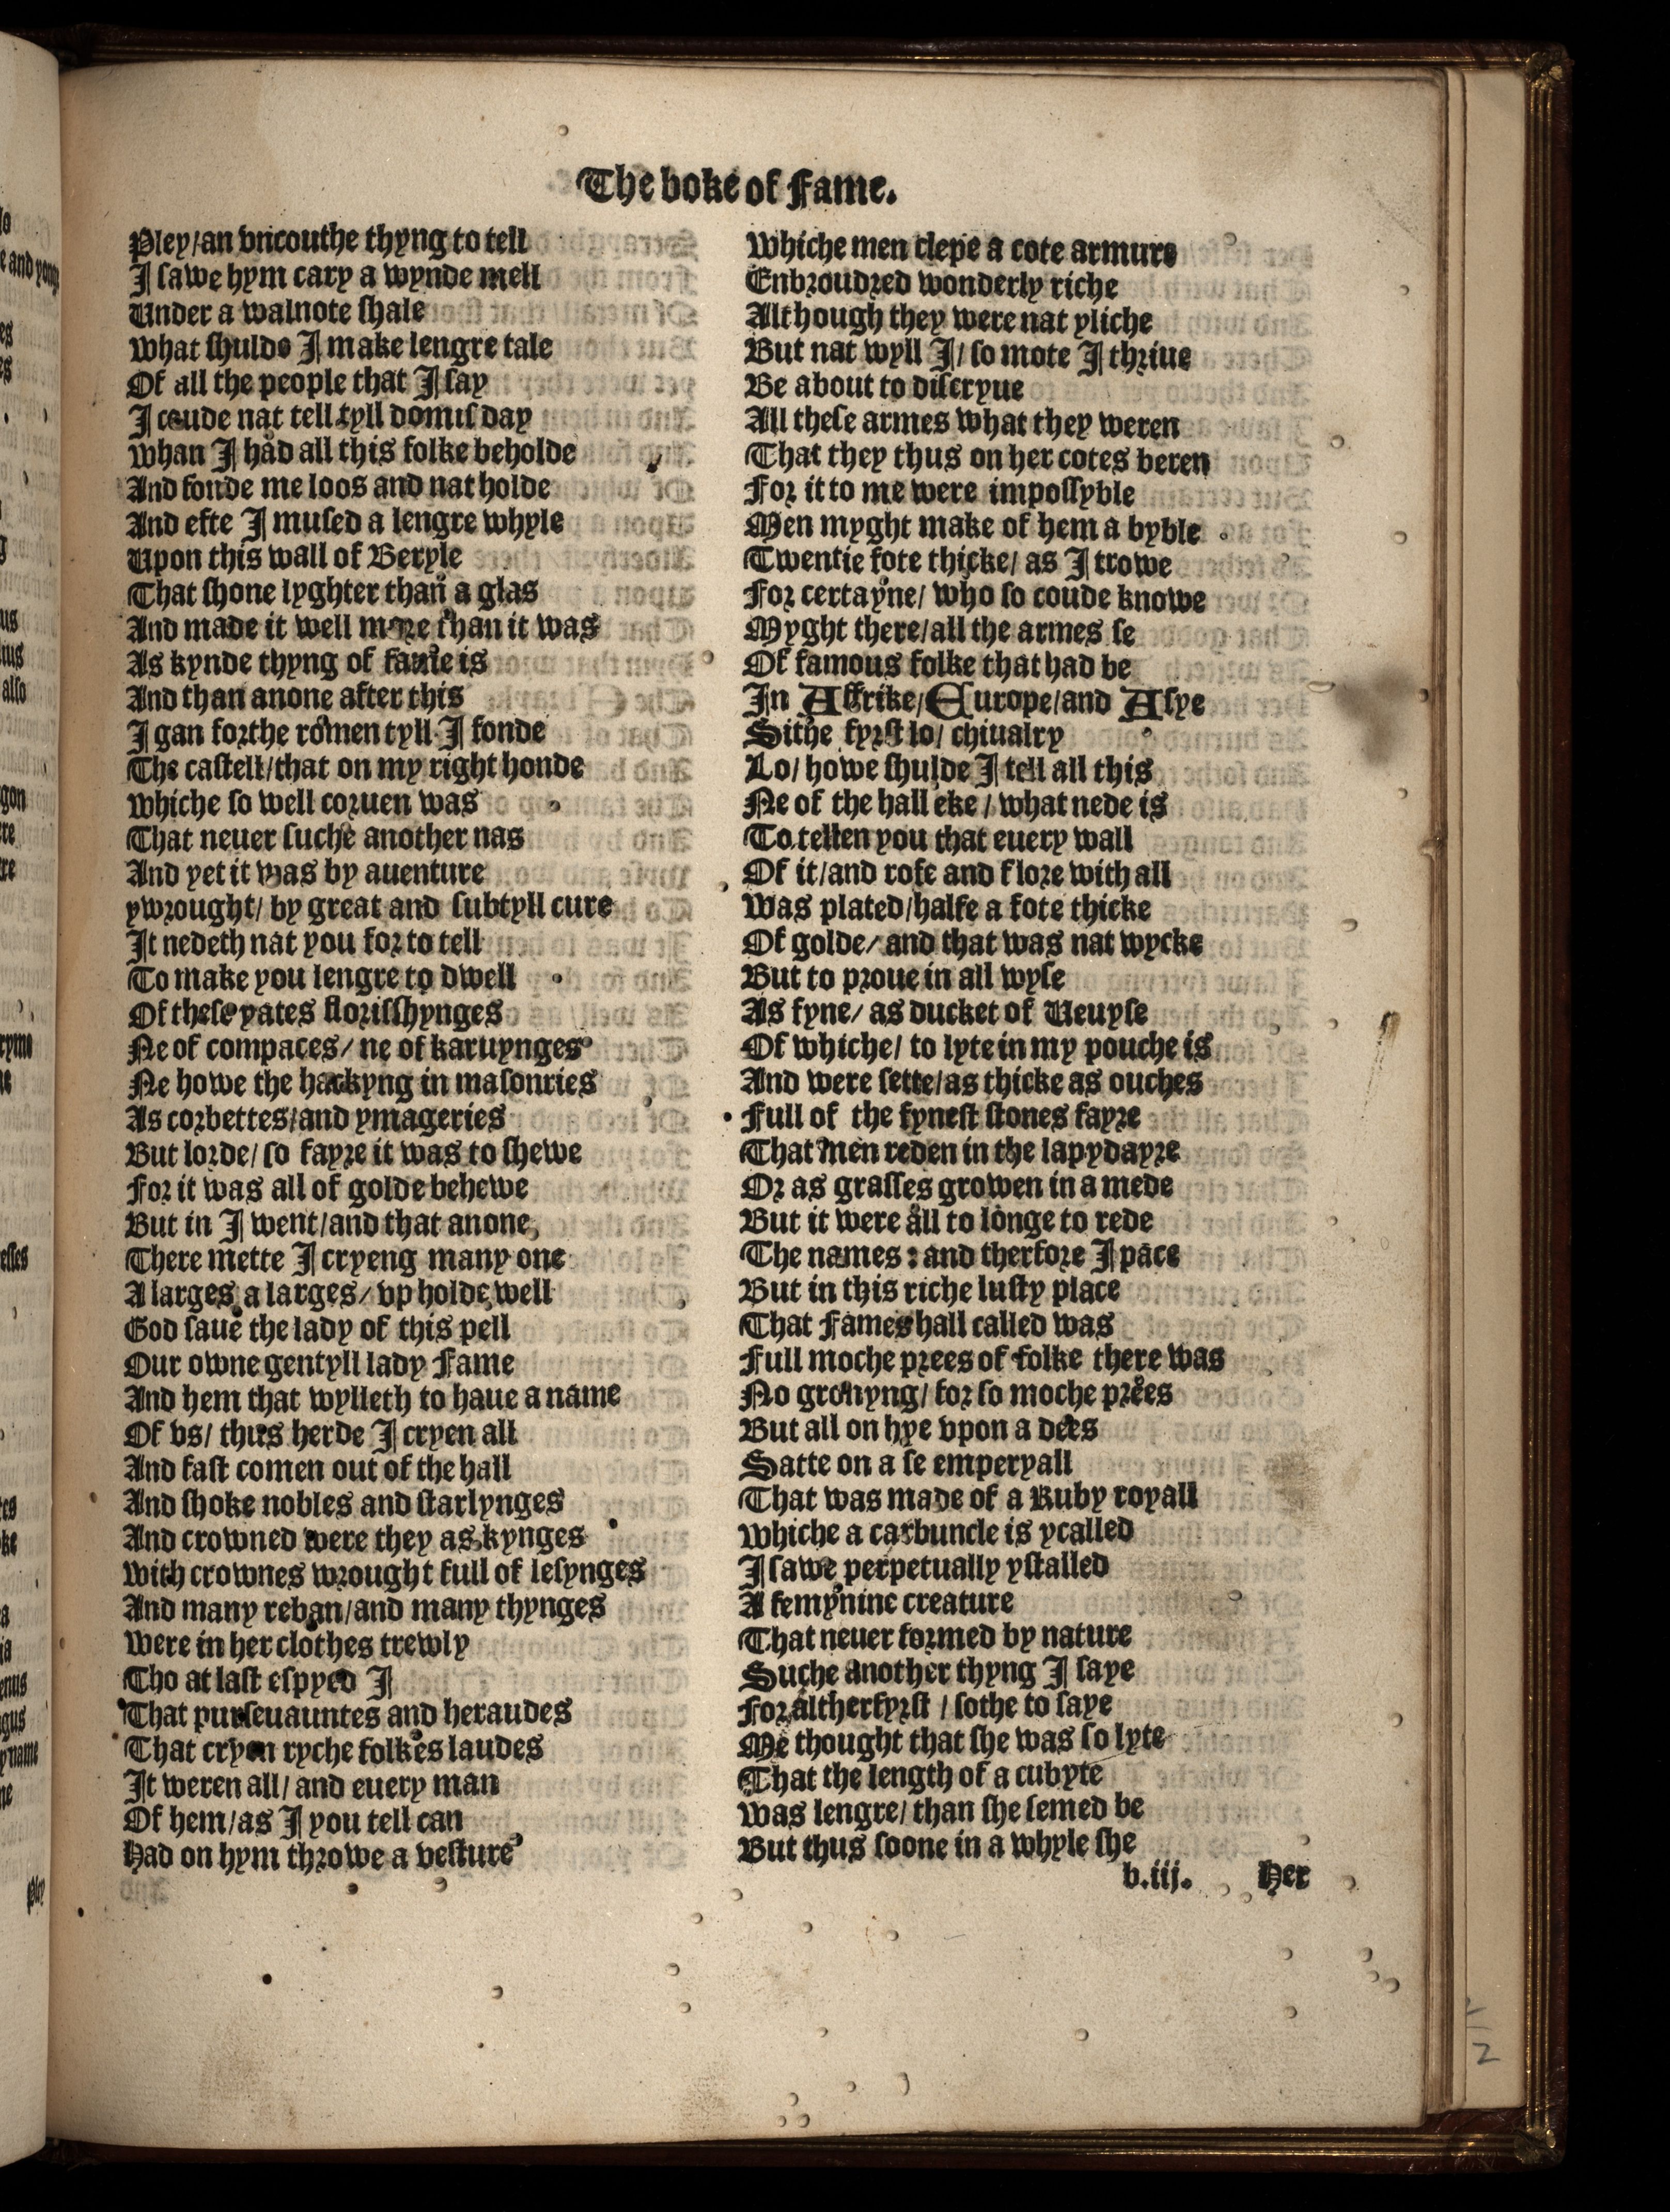 The boke of Fame.
Pley/an vncouthe thyng to tell
I sawe hym cary a wynde mell
Under a walnote shale
What shulde I make lengre tale
Of all the people that I say
I coude nat tell tyll domisday
Whan I had all this folke beholde
And fonde me loos and nat holde
And efte I mused a lengre whyle
Upon this wall of Beryle
That shone lyghter than a glas
And made it well more than it was
As kynde thyng of fame is
And than anone after this
I gan forthe romen tyll I fonde
The castell/that on my right honde
Whiche so well coruen was
That neuer suche another nas
And yet it was by auenture
ywrought/ by great and subtyll cure
It nedeth nat you for to tell
To make you lengre to dwell
Of these yates florisshynges
Ne of compaces/ ne of karuynges
Ne howe the hackyng in masonries
As corbettes/and ymageries
But lorde/ so fayre it was to shewe
For it was all of golde behewe
But in I went/and that anone
There mette I cryeng many one
A larges a larges/ vp holde well
God saue the lady of this pell
Our owne gentyll lady Fame
And hem that wylleth to haue a name
Of vs/ thus herde I cryen all
And fast comen out of the hall
And shoke nobles and starlynges
And crowned were they as kynges
With crownes wrought full of lesynges
And many reban/and many thynges
Were in her clothes trewly
Tho at last espyed I
That purseuauntes and heraudes
That cryen ryche folkes laudes
It weren all/ and euery man
Of hem/as I you tell can
Had on hym throwe a vesture
Whiche men clepe a cote armure
Enbroudred wonderly riche
Although they were nat yliche
But nat wyll I/ so mote I thriue
Be about to discryue
All these armes what they weren
That they thus on her cotes beren
For it to me were impossyble
Men myght make of hem a byble
Twentie fote thicke/ as I trowe
For certayne/ who so coude knowe
Myght there/all the armes se
Of famous folke that had be
In Affrike/Europe/and Asye
Sithe fyrst lo/ chiualry
Lo/ howe shulde I tell all this
Ne of the hall eke / what nede is
To tellen you that euery wall
Of it/and rofe and flore with all
Was plated/halfe a fote thicke
Of golde/ and that was nat wycke
But to proue in all wyse
As fyne/ as ducket of Ueuyse
Of whiche/ to lyte in my pouche is
And were sette/as thicke as ouches
Full of the fynest stones fayre
That men reden in the lapydayre
Or as grasses growen in a mede
But it were all to longe to rede
The names : and therfore I pace
But in this riche lusty place
That Fames hall called was
Full moche prees of folke there was
No gronyng/ for so moche prees
But all on hye vpon a dees
Satte on a se emperyall
That was made of a Ruby royall
Whiche a carbuncle is ycalled
I sawe perpetually ystalled
A femynine creature
That neuer formed by nature
Suche another thyng I saye
For altherfyrst / sothe to saye
Me thought that she was so lyte
That the length of a cubyte
Was lengre/ than she semed be
But thus soone in a whyle she
b.iij. Her